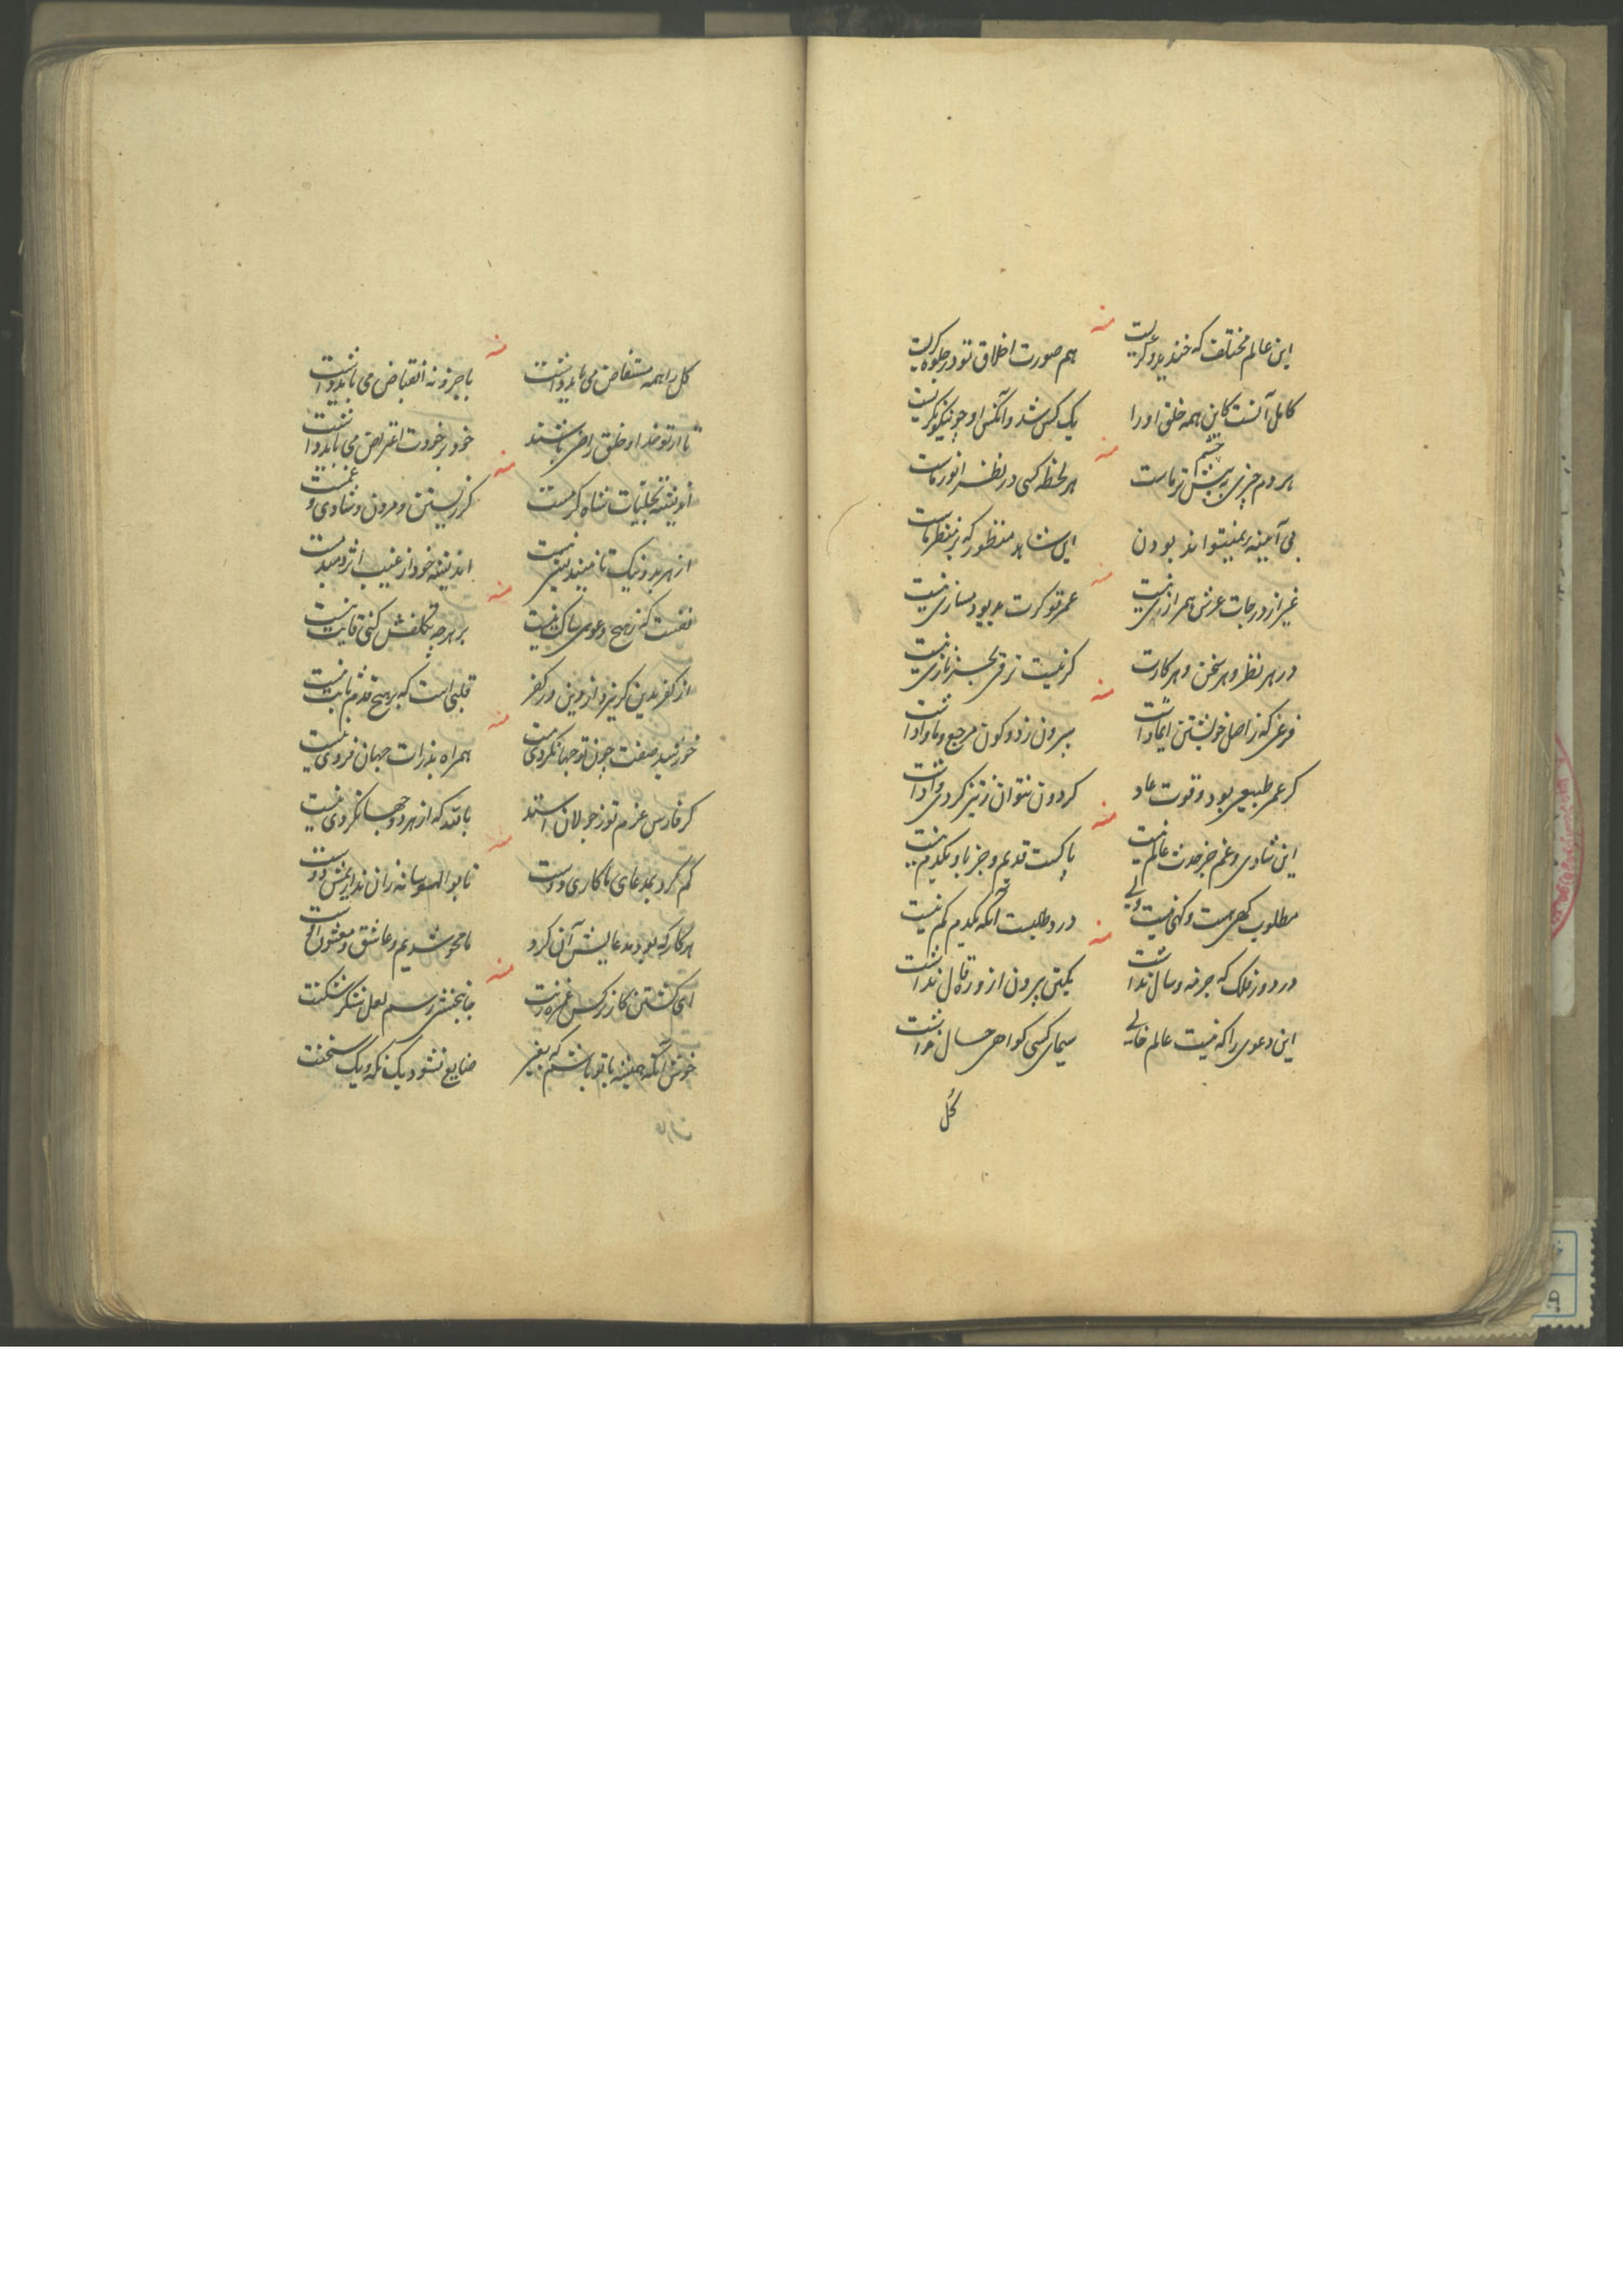 منه
این عالم مختلف که خندید و گریست
هم صورت اخلاق تو در جلوه گریست
کامل آنست کاین همه خلق او را
یک کس شد و آنکس او چو نیکو نگریست
منه
هر دم چیزی به پیش چشم تر ماست
هر لحظه کسی در نظر انور ماست
بی آمینه نمیتواند بودن
این شاهد منظور که بر منظر ماست
منه
غیر از درجات عرش همرازی نیست
عمر تو کرت بود بسازی نیست
در هر نظر و هر سخن و هر کارت
کر نیست ترقی بجز بازی نیست
منه
فرعی که ز اصل خویشتن ایما داشت
بیرون ز دو کون مرجع و ماوا داشت
کر عمر طبیعی بود و قوت عاد
کردون نتوان ز تیز کردی وا داشت
منه
این شادی و غم جز حدث عالم نیست
پاکست قدیم و جز باو یکدم نیست
مطلوب کهی هست و کهی نیست ولی
درد طلبست آنکه یکدم کم نیست
منه
در دور فلک که جز مه و سال نداشت
یکتن بیرون از ورق قال نداشت
این دعوی را که نیست عالم خالی
سیمای کسی کواهی حال نداشت
کل
منه
کل را همه مستفاض می باید داشت
با جزو نه انقباض می باید داشت
تا از تو خدا و خلق راضی باشند
خود بر خودت اعتراض می باید داشت
منه
اندیشه تجلیات شاه کرمست
کز زیستن و مردن و شادی و غمست
از هر بد و نیک تا نبیند نیست
اندیشه خود از غیب اثر دمبدمست
منه
نفست که ز هیچ دعوی ساکت نیست
بر هرچه مکلفش کنی قانت نیست
از کفر بدین کریزد و از دین در کفر
قلبی است که بر هیچ قدم ثابت نیست
منه
خورشید صفت چون تو جهانکردی نیست
همراه بذرات جهان فردی نیست
کر فارس عزم تو ز جولان استد
باقتد که از هر دو جهان کردی نیست
منه
کم کرد بمدعای ما کاری دوست
تا بوالهوسانه زان نداریمش دوست
هر کار که بود مدعایش آن کرد
ما محو شدیم و عاشق و معشوق اوست
منه
ای کشتن کار نرکس غمزه زنت
جانبخشی رسم لعل شکر شکنت
خوش آنکه همیشه با تو باشم که بغیر
ضایع نشود یک نکه و یک سخنت